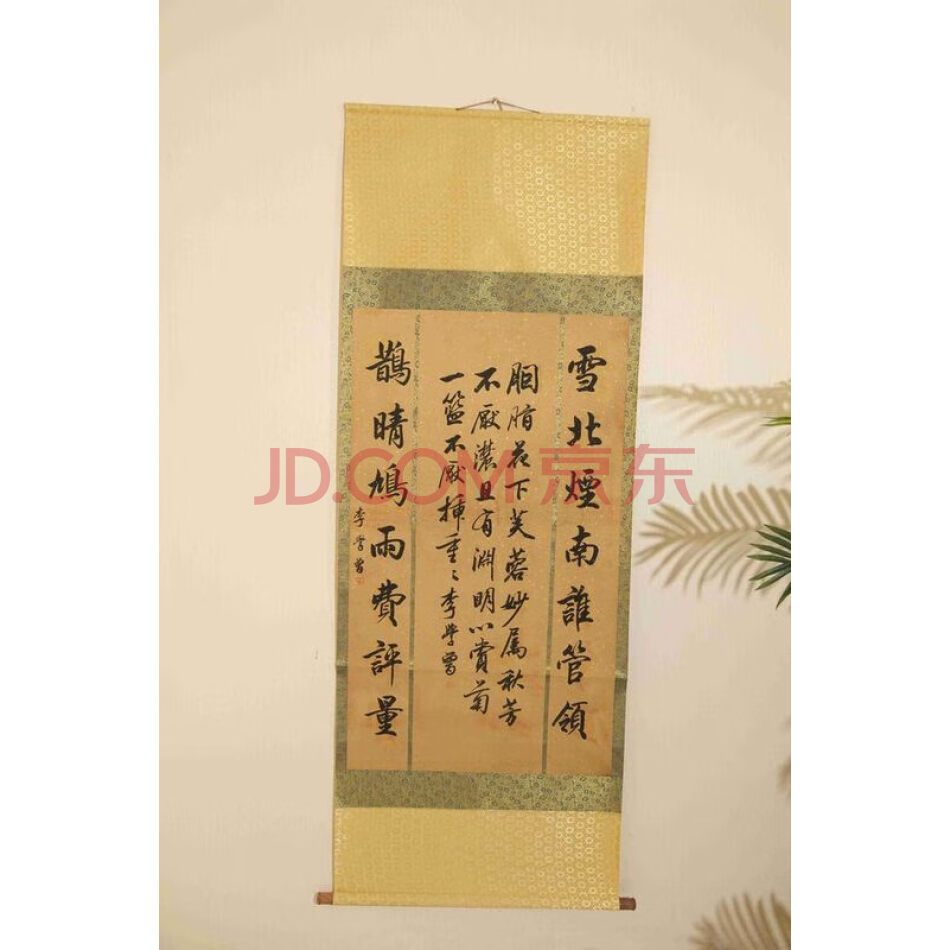 雪北煙南誰管領
胭脂花下芙蓉妙属秋芳
不厭濃且有淵明以賞菊
一籃不厭插重〻李學曾
鵲晴鳩雨費評量
李學曾
JD.COM 京东